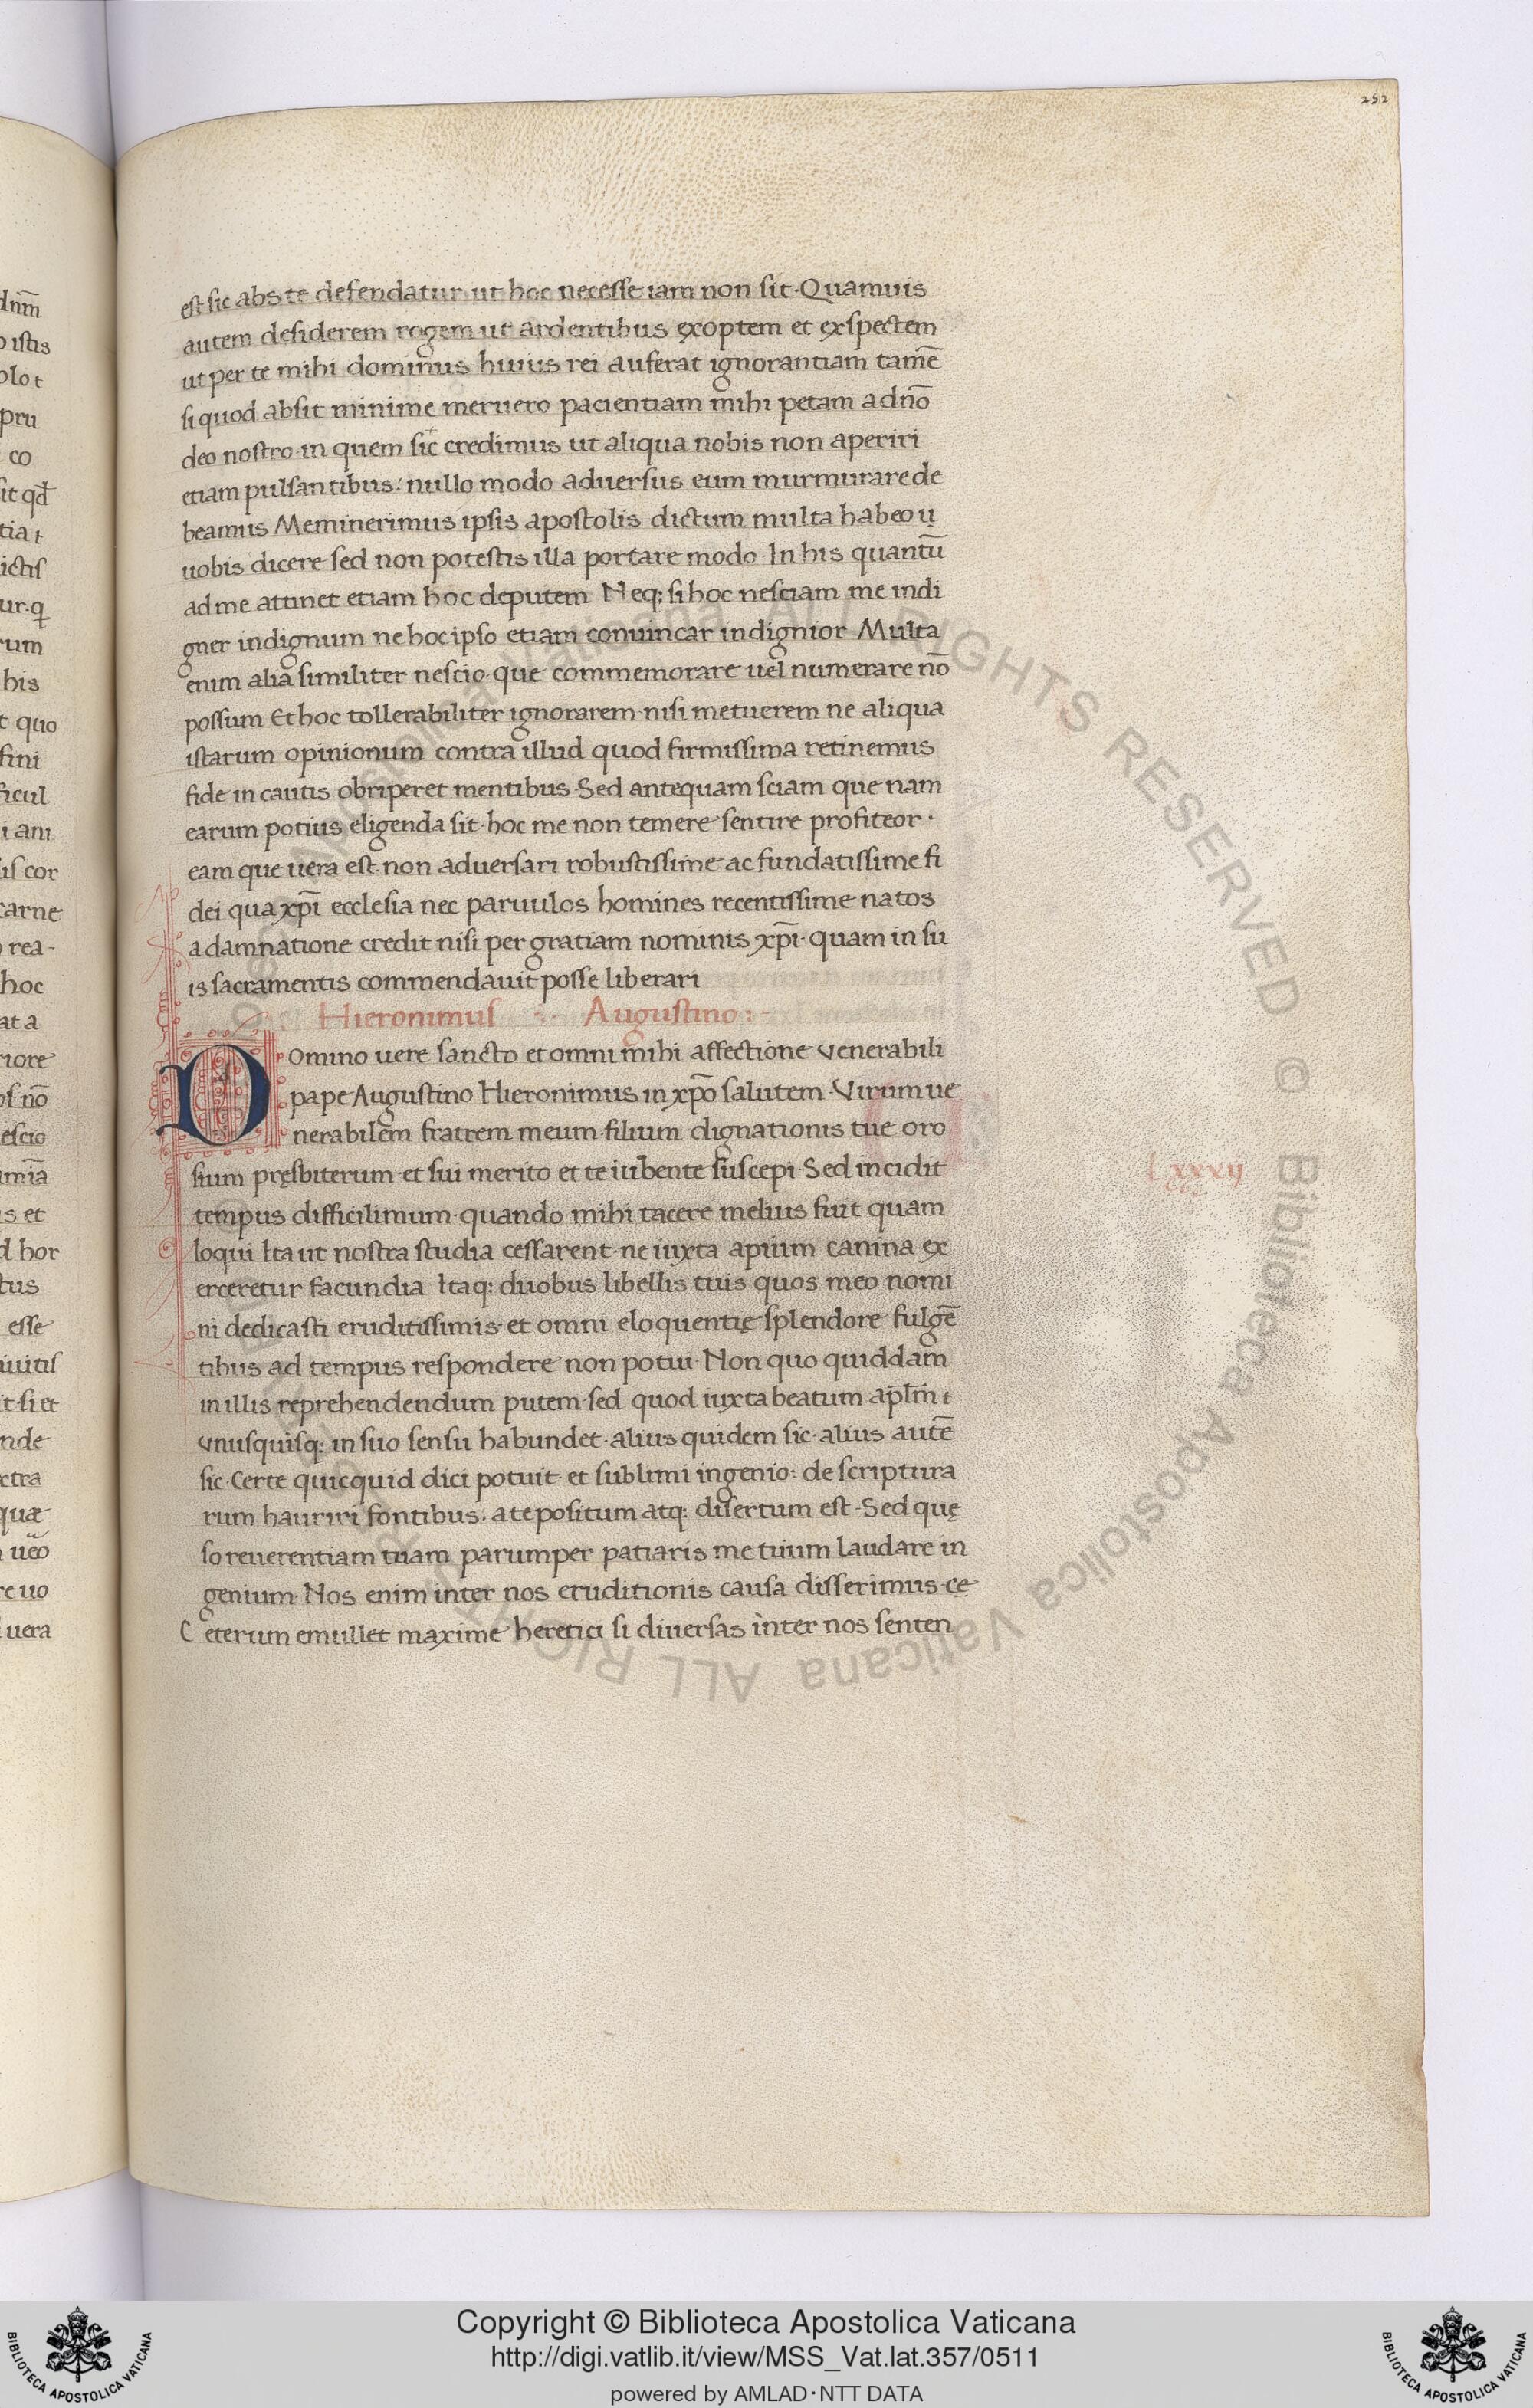 252
est sic abs te defendatur ut hoc necesse iam non sit · Quamuis
autem desiderem rogem ut ardentibus exoptem et exspectem
ut per te mihi dominus huius rei auferat ignorantiam tamē
si quod absit minime meruero pacientiam mihi petam a dn̄o
deo nostro · in quem sic credimus ut aliqua nobis non aperiri
etiam pulsantibus: nullo modo aduersus eum murmurare de
beamus Meminerimus ipsis apostolis dictum multa habeo
uobis dicere sed non potestis illa portare modo · In his quantū
ad me attinet etiam hoc deputem Neq: si hoc nesciam me indi
gner indignum ne hoc ipso etiam conuincar indignior · Multa
enim alia similiter nescio · que commemorare uel numerare nō
possum Et hoc tollerabiliter ignorarem · nisi metuerem ne aliqua
istarum opinionum contra illud quod firmissima retinemus
fide in cautis obriperet mentibus · Sed antequam sciam que nam
earum potius eligenda sit · hoc me non temere sentire profiteor ·
eam que uera est · non aduersari robustissime ac fundatissime fi
dei qua xp̄i ecclesia nec paruulos homines recentissime natos
a damnatione credit nisi per gratiam nominis xp̄i · quam in su
is sacramentis commendauit posse liberari
Hieronimus Augustino :
Domino uere sancto et omni mihi affectione venerabili
pape Augustino Hieronimus in xp̄o salutem · Virum ue
nerabilem fratrem meum · filium dignationis tue oro
sium pręsbiterum · et sui merito et te iubente suscepi · Sed incidit
tempus difficilimum · quando mihi tacere melius fuit quam
loqui Ita ut nostra studia cessarent · ne iuxta apium canina ex
erceretur facundia Itaq: duobus libellis tuis quos meo nomi
ni dedicasti eruditissimis · et omni eloquentię splendore fulgē
tibus ad tempus respondere non potui · Non quo quiddam
in illis reprehendendum putem · sed quod iuxta beatum ap̄lm
vnusquisq: in suo sensu habundet · alius quidem sic · alius autē
sic · Certe quicquid dici potuit · et sublimi ingenio: de scriptura
rum hauriri fontibus · a te positum atq: disertum est · Sed quę
so reuerentiam tuam parumper patiaris me tuum laudare in
genium · Nos enim inter nos eruditionis causa disserimus · cę
C eterum emullet maxime heretici si diuersas inter nos senten
Lxxxij
Copyright © Biblioteca Apostolica Vaticana
http://digi.vatlib.it/view/MSS_Vat.lat.357/0511
powered by AMLAD · NTT DATA
BIBLIOTECA APOSTOLICA VATICANA
BIBLIOTECA APOSTOLICA VATICANA